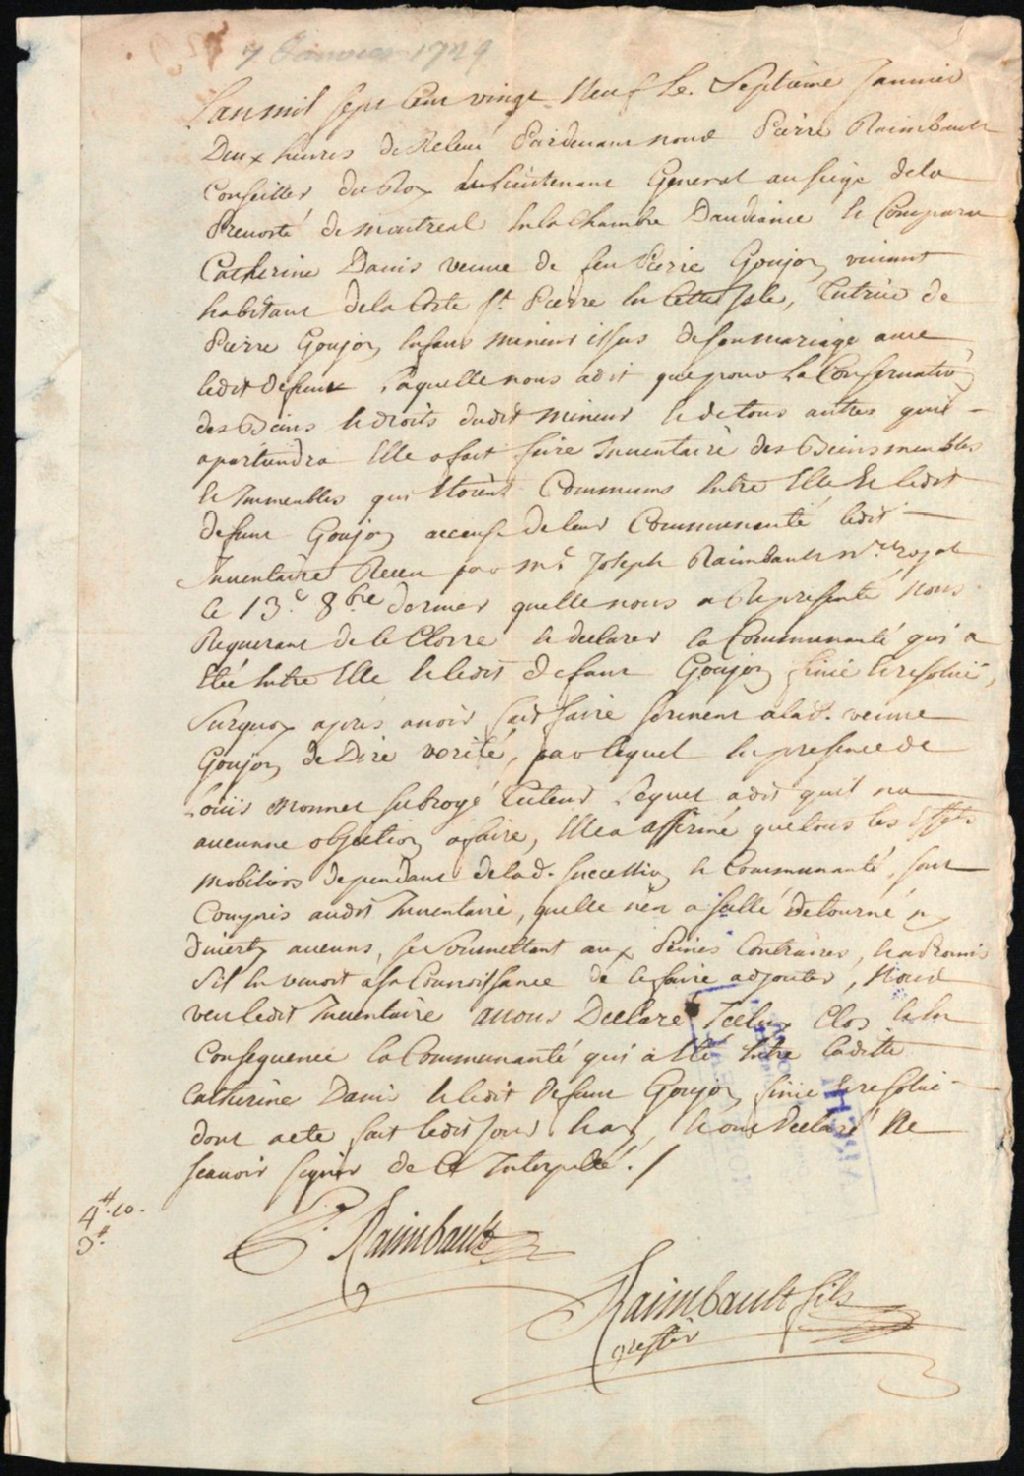 7 Janvier 1729
Lan mil sept Cent vingt Neuf Le Septième Janvier
Deux heures de Relevé Pardevant nous Pierre Raimbault
Conseiller du Roy Lieutenant General au siege de la
Prevosté de montreal En la Chambre Daudiance Est Comparu
Catherine Danis veuve de feu Pierre Goujon vivant
habitant de la Coste St. Pierre En Cette Isle, Tutrice de
Pierre Goujon Enfant mineur issus de son mariage avec
ledit Defunt, Laquelle nous a dit que pour La Conservation
des Biens & droits dudit Mineur & de tous autres quil
apartiendra Elle a fait faire Inventaire des Biens meubles
& Immeubles qui Etoient Communs Entre Elle & ledit
defunt Goujon a cause de leur Communauté ledit
Inventaire Receu par Me. Joseph Raimbault Nre. royal
le 13e. 8bre dernier quelle nous a Representé Nous
Requerant de le Clorre & declarer la Communauté qui a
Eté Entre Elle & ledit Defunt Goujon finie & resolue,
Surquoy après avoir fait faire serment a lad. veuve
Goujon de Dire verité, par lequel En presence de
Louis Monnet subrogé Tuteur Lequel a dit quil na
aucunne objection a faire, Elle a affirmé que tous les Effets
mobiliers dependant de lad. succession & Communauté, sont
Compris audit Inventaire, quelle n'en a recellé detourné ny
diverty aucuns, se Soumettant aux Peines Contraires,
Sil En venoit a sa Connoissance de les faire adjouter, Nous
veu ledit Inventaire avons Declaré Iceluy Clos & En
Consequence la Communauté qui a Eté Entre laditte
Catherine Danis & ledit Defunt Goujon finie & resolue
dont acte fait ledit jour & an, & ont declaré Ne
scavoir signer de Ce Interpellé. /
4# .10.
3#
P. Raimbault
Raimbault fils
greffier